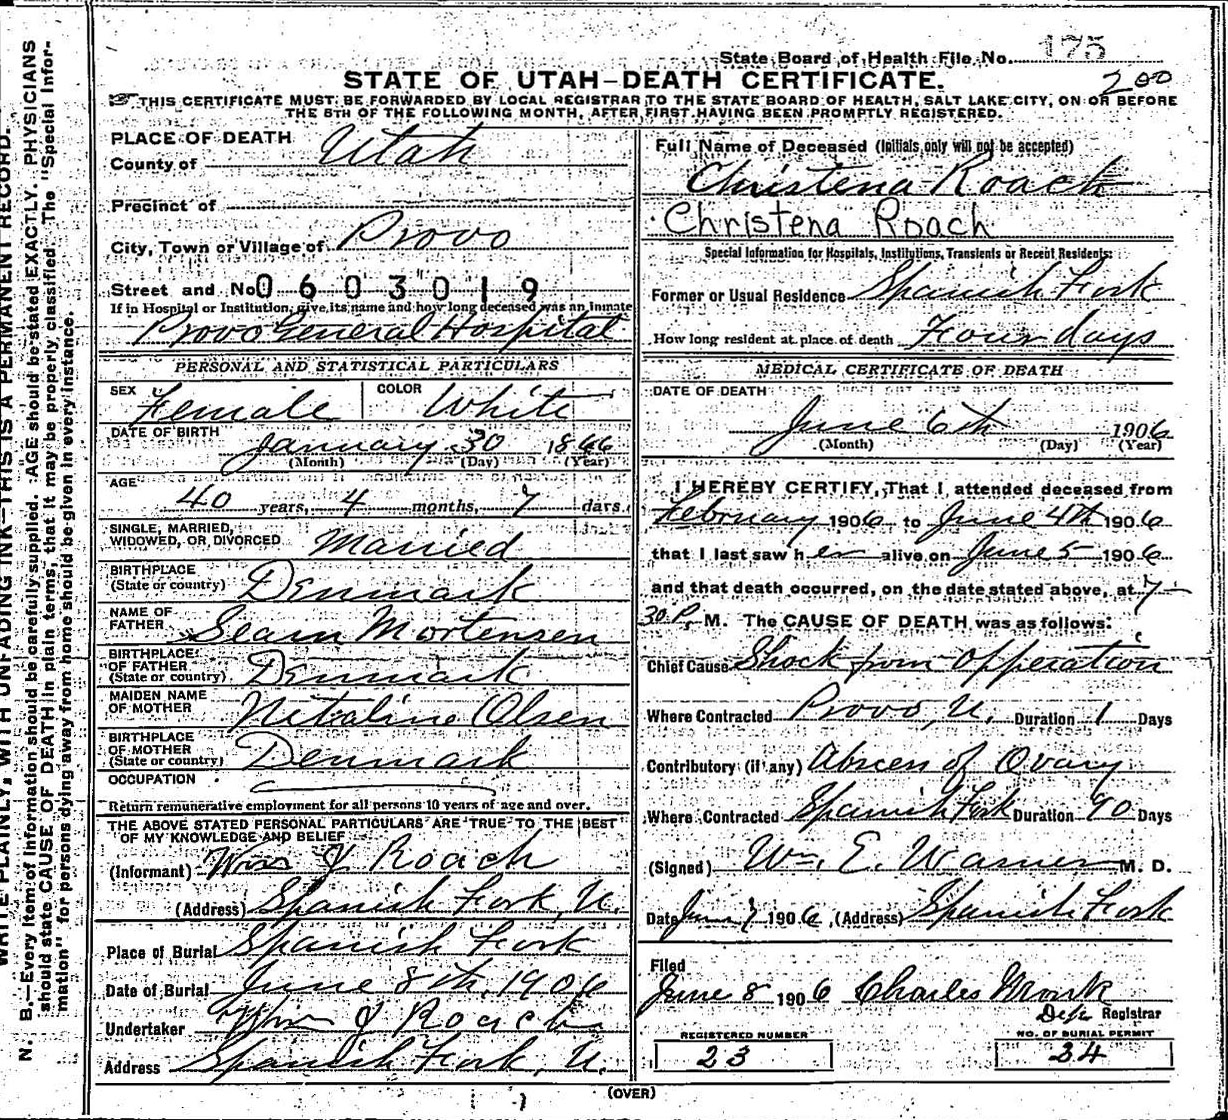 State Board of Health File No. 175
200
STATE OF UTAH—DEATH CERTIFICATE.
THIS CERTIFICATE MUST BE FORWARDED BY LOCAL REGISTRAR TO THE STATE BOARD OF HEALTH, SALT LAKE CITY, ON OR BEFORE
THE 5TH OF THE FOLLOWING MONTH, AFTER FIRST HAVING BEEN PROMPTLY REGISTERED.
PLACE OF DEATH
County of Utah
Precinct of
City, Town or Village of Provo
Street and No. 0603019
If in Hospital or Institution, give its name and how long deceased was an inmate
Provo General Hospital
PERSONAL AND STATISTICAL PARTICULARS
SEX Female COLOR White
DATE OF BIRTH
January 30 1866
(Month) (Day) (Year)
AGE
40 years, 4 months, 7 days.
SINGLE, MARRIED,
WIDOWED, OR DIVORCED Married
BIRTHPLACE
(State or country) Denmark
NAME OF
FATHER Mortensen
BIRTHPLACE
OF FATHER
(State or country) Denmark
MAIDEN NAME
OF MOTHER Olsen
BIRTHPLACE
OF MOTHER
(State or country) Denmark
OCCUPATION
Return remunerative employment for all persons 10 years of age and over.
THE ABOVE STATED PERSONAL PARTICULARS ARE TRUE TO THE BEST
OF MY KNOWLEDGE AND BELIEF
(Informant) Wm J Roach
(Address) Spanish Fork, U.
Place of Burial Spanish Fork
Date of Burial June 8th, 1906
Undertaker Wm J Roach
Address Spanish Fork, U.
Full Name of Deceased (Initials only will not be accepted)
Christena Roach
Christena Roach
Special Information for Hospitals, Institutions, Transients or Recent Residents:
Former or Usual Residence Spanish Fork
How long resident at place of death Four days
MEDICAL CERTIFICATE OF DEATH
DATE OF DEATH
June 6th 1906
(Month) (Day) (Year)
I HEREBY CERTIFY, That I attended deceased from
February 1906 to June 4th 1906
that I last saw her alive on June 5 1906
and that death occurred, on the date stated above, at 7-
30 P. M. The CAUSE OF DEATH was as follows:
Chief Cause Shock from Opperation
Where Contracted Provo, U. Duration 1 Days
Contributory (if any) Abscess of Ovary
Where Contracted Spanish Fork Duration 90 Days
(Signed) Wm. E. Warner M. D.
Date June 7 1906, (Address) Spanish Fork
Filed
June 8 1906 Charles
Registrar
REGISTERED NUMBER
23
NO. OF BURIAL PERMIT
24
(OVER)
WRITE PLAINLY, WITH UNFADING INK—THIS IS A PERMANENT RECORD.
N. B.—Every item of information should be carefully supplied. AGE should be stated EXACTLY. PHYSICIANS
should state CAUSE OF DEATH in plain terms, that it may be properly classified. The "Special Infor-
mation" for persons dying away from home should be given in every instance.